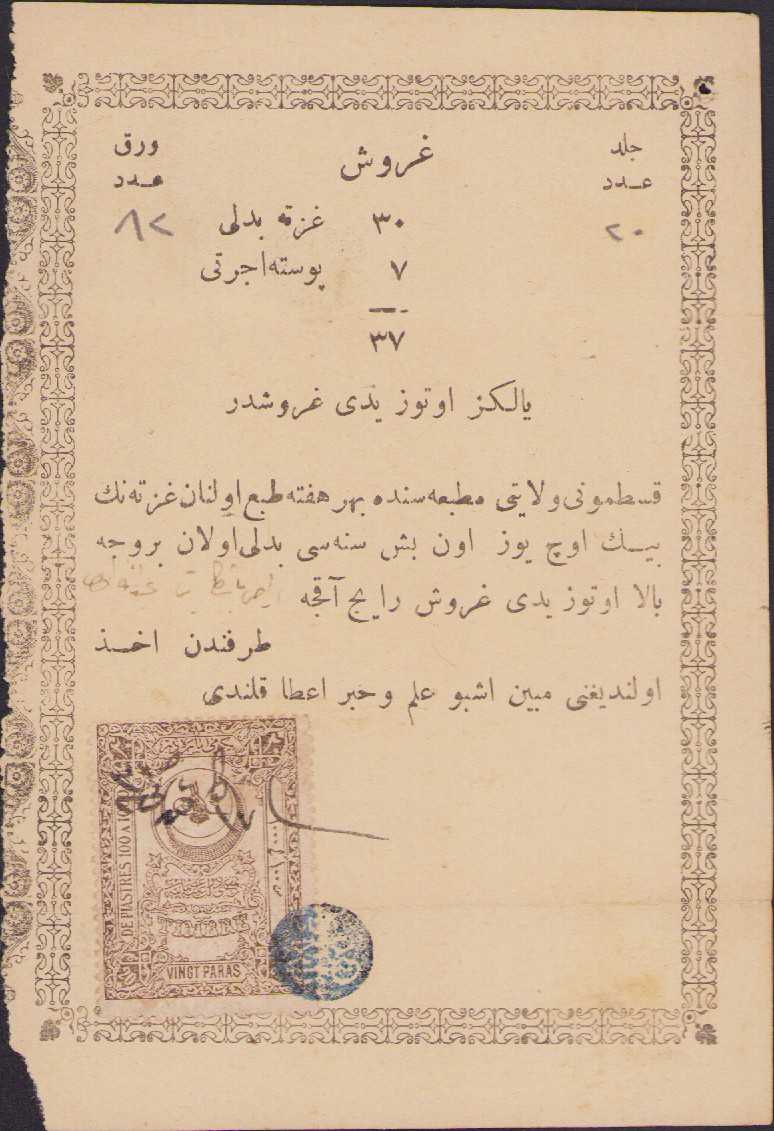 جلد غروش ورق
عدد عدد
٢٠ ٣٠ غزته بدلى ٨٢
٧ پوسته اجرتى
٣٧
يالكز اوتوز يدى غروشدر
قسطمونى ولايتى مطبعه سنده بهر هفته طبع اولنان غزته نك
بيك اوچ يوز اون بش سنه سى بدلى اولان بروجه
بالا اوتوز يدى غروش رايج آقچه
طرفندن اخذ
اولنديغنى مبين اشبو علم وخبر اعطا قلندى
DE PIASTRES 100 A 1000
TIMBRE
VINGT PARAS